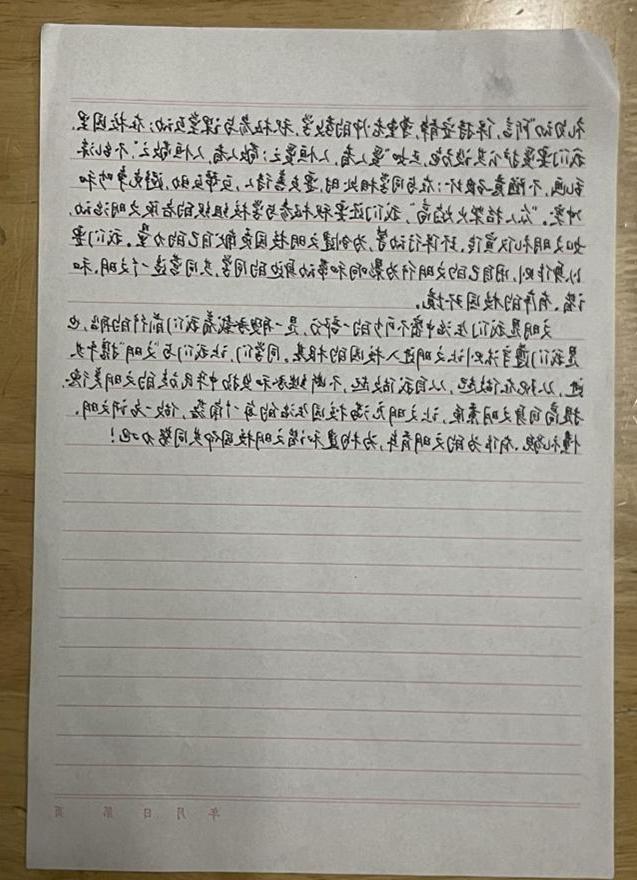 礼勿动"所言,保持安静,尊重老师的教学,积极参与课堂互动;在校园里,
我们要爱护公共设施,正如"爱人者,人恒爱之;敬人者,人恒敬之",不乱涂
乱画,不随意破坏;在与同学相处时,要友善待人,互帮互助,避免争吵和
冲突。"众人拾柴火焰高",我们还要积极参与学校组织的各项文明活动,
如文明礼仪宣传、环保行动等,为创建文明校园贡献自己的力量。我们要
以身作则,用自己的文明行为影响和带动身边的同学,共同营造一个文明、和
谐、有序的校园环境。
文明是我们生活中密不可分的一部分,是一承载着我们前行的船,也
是我们遵守法则让文明进入校园的根基。同学们,让我们与"文明"携手共
进,从现在做起,从自我做起,不断继承和发扬中华民族的文明美德,
提高自身文明素质,让文明充满校园生活的每一个角落,做一名讲文明、
懂礼貌、有作为的文明青年,为构建和谐文明校园而共同努力吧!
年 月 日 第 页